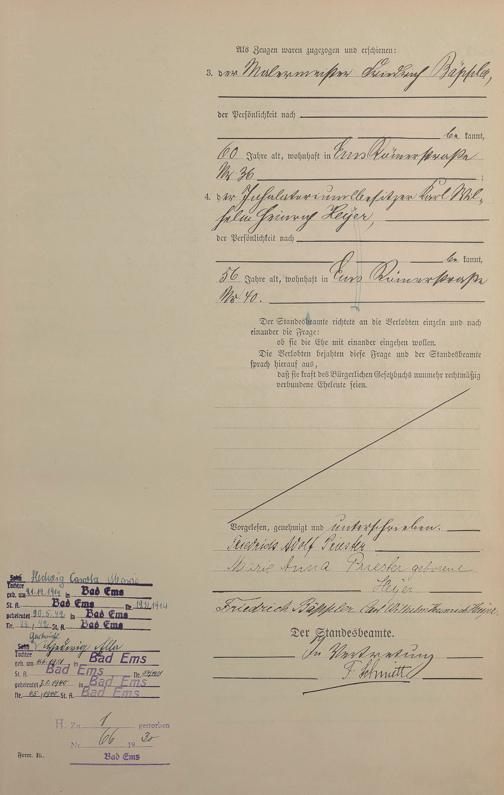 Als Zeugen waren zugezogen und erschienen:
3. der Malermeister Friedrich Bäppler,
der Persönlichkeit nach
be kannt,
60 Jahre alt, wohnhaft in Ems Römerstraße
Nr. 36 ;
4. der Inhalatoriumsbesitzer Karl Wil-
helm Heinrich Heyer,
der Persönlichkeit nach
be kannt,
56 Jahre alt, wohnhaft in Ems Römerstraße
Nr. 40.
Der Standesbeamte richtete an die Verlobten einzeln und nach
einander die Frage:
ob sie die Ehe mit einander eingehen wollen.
Die Verlobten bejahten diese Frage und der Standesbeamte
sprach hierauf aus,
daß sie kraft des Bürgerlichen Gesetzbuchs nunmehr rechtmäßig
verbundene Eheleute seien.
Vorgelesen, genehmigt und unterschrieben.
Friedrich Adolf Priester
Marie Anna Priester geborene
Heyer
Friedrich Bäppler Carl Wilhelm Heinrich Heyer
Der Standesbeamte.
In Vertretung
F. Schmitt
Hedwig Carola
Tochter
geb. am in Bad Ems
St. A. Bad Ems Nr.
geheiratet 20.5.42 in Bad Ems
Nr. St. A. Bad Ems
Tochter
geb. am in Bad Ems
St. A. Bad Ems Nr.
geheiratet in Bad Ems
Nr. St. A. Bad Ems
H. Zu 1 gestorben
Nr. 66 19 30
Bad Ems
Form. Bb.